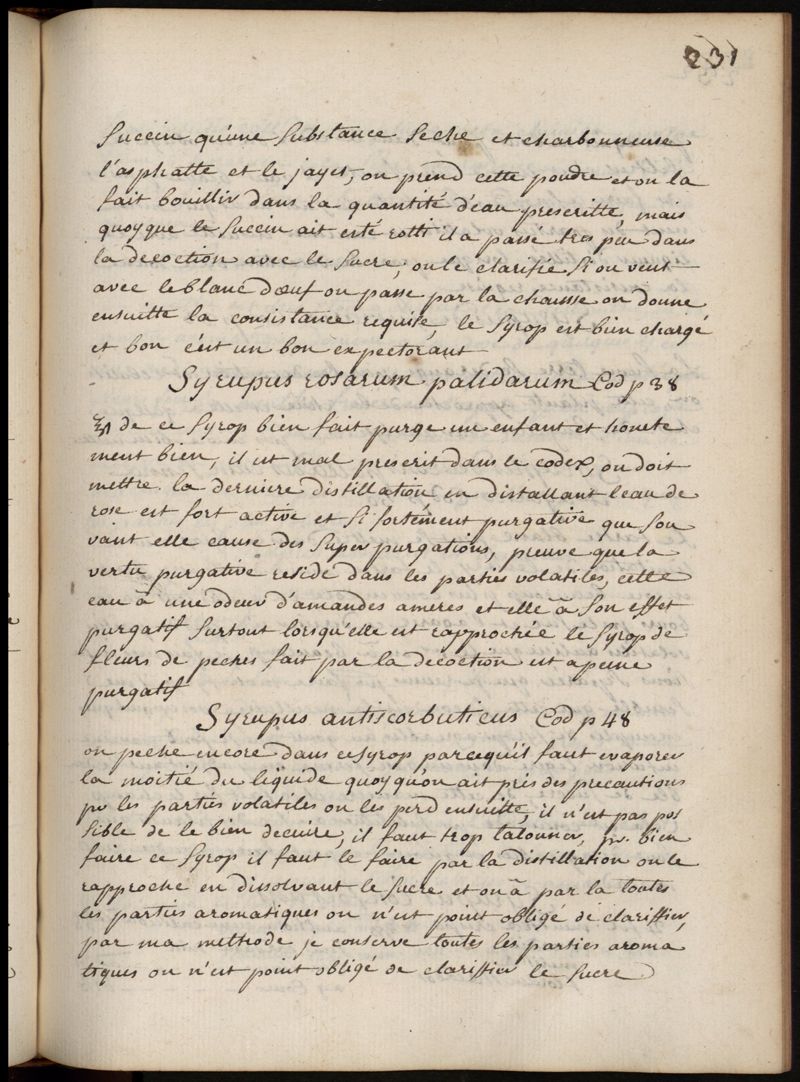 231
Succin qu'une substance seche et charbonneuse
l'asphatte et le jayet, on prend cette poudre et on la
fait bouillir dans la quantité d'eau prescritte, mais
quoyque le succin ait esté rotti il a passé tres peu dans
la decoction avec le sucre, on le clarifie si on veut
avec le blanc d'œuf on passe par la chausse on donne
ensuitte la consistance requise, le syrop est bien chargé
et bon c'est un bon expectorant
Syrupus rosarum palidarum Cod p 38
de ce syrop bien fait purge un enfant et honete
ment bien, il est mal prescrit dans le codex, on doit
mettre la derniere distillation en distallant l'eau de
rose est fort active et si fortément purgative que sou
vant elle cause des super purgations, preuve que la
vertu purgative reside dans les parties volatiles, cette
eau ã une odeur d'amandes ameres et elle ã son effet
purgatif surtout lorsqu'elle est rapprochée le syrop de
fleurs de peches fait par la decoction est a peine
purgatif
Syrupus antiscorbuticus Cod p 48
on peche encore dans ce syrop parcequ'il faut evaporer
la moitié du liquide quoyqu'on ait pris des precautions
pr les parties volatiles on les perd ensuitte, il n'est pas pos
sible de le bien decuire, il faut trop tatonner, pr. bien
faire ce syrop il faut le faire par la distillation on le
rapproche en dissolvant le sucre et on ã par la toutes
les parties aromatiques on n'est point obligé de clariffier,
par ma methode je conserve toutes les parties aroma
tiques on n'est point obligé de clariffier le sucre